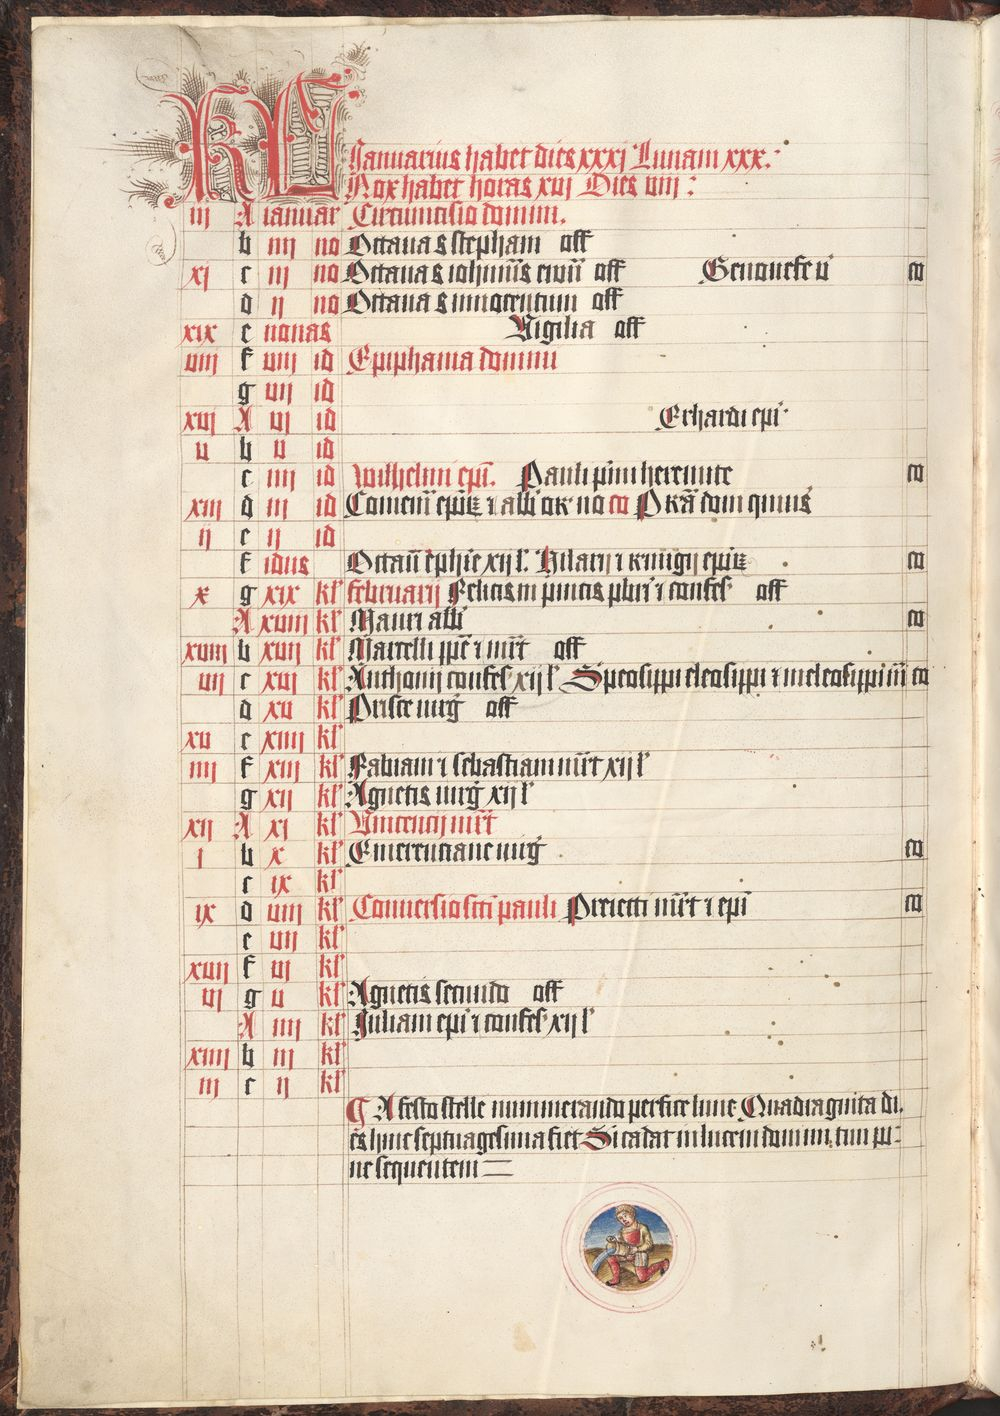 KL Januarius habet dies xxxi Lunam xxx.
Nox habet horas xvi Dies viii:
iii A ianuar Circuncisio domini.
b iiii no Octaua s stephani off
xi c iii no Octaua s iohannis ewan off Genouefe v̄ co
d ii no Octaua s innocentum off
xix e nonas Vigilia off
viii f viii id Epiphania domini
g vii id
xvi A vi id Erhardi epi
v b v id
c iiii id Wilhelmi epi. Pauli primi heremite co
xiii d iii id Comem epor̄ ⁊ abb̄ or̄ no co
ii e ii id
f idus Octau ephie xii l. Hilarii ⁊ remigii epor̄ co
x g xix kl februarii Felicis in pincis pbri ⁊ confes off
A xviii kl Mauri abb̄ co
xviii b xvii kl Marcelli ppe ⁊ mrt off
vii c xvi kl Anthonii confes xii l Speosippi eleosippi ⁊ meleosippi m̄ co
d xv kl Prisce virg off
xv e xiiii kl
iiii f xiii kl Fabiani ⁊ sebastiani mrt xii l
g xii kl Agnetis virg xii l
xii A xi kl Vincencii mrt
i b x kl Emerenciane virg co
c ix kl
ix d viii kl Conuersio scti pauli Preiecti mrt ⁊ epi co
e vii kl
xvii f vi kl
vi g v kl Agnetis secundo off
A iiii kl Juliani epi ⁊ confes xii l
xiiii b iii kl
iii c ii kl
A festo stelle nummerando perfice lune Quadraginta di.
es hinc septuagesima fiet Si cadat in lucem domini, tun pi-
ne sequentem